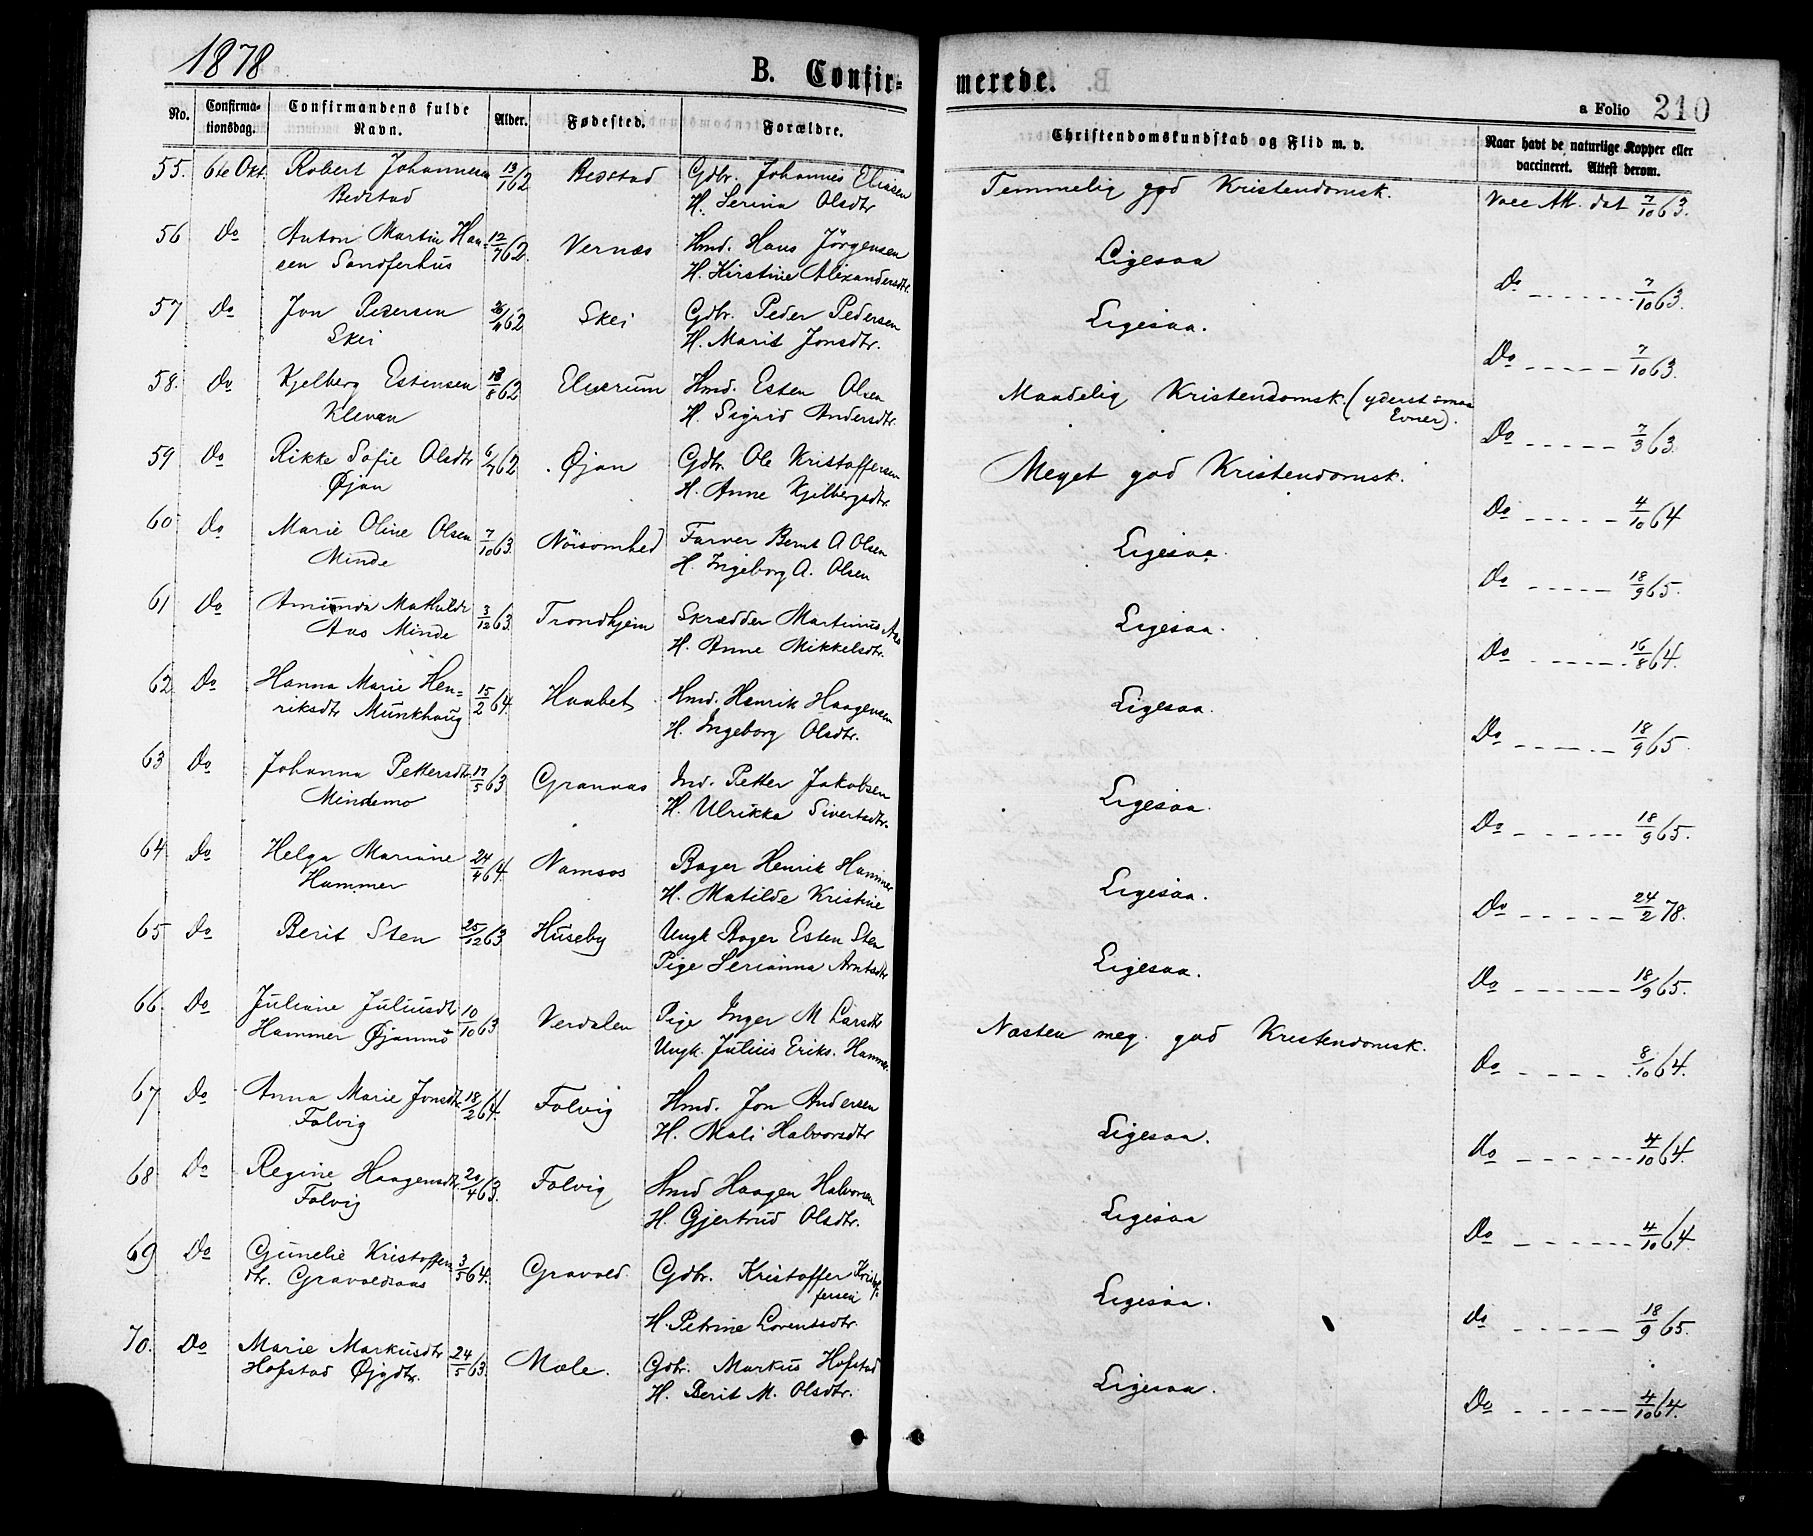 1878
B. Confir-
merede.
a Folio 210
No. Confirma-tionsdag. Confirmandens fulde Navn. Alder. Fødested. Forældre. Christendomskundskab og Flid m. v. Naar havt de naturlige Kopper eller vaccineret. Attest derom.
55. 6te Okt. Robert Johannesen 13/1 62 Bedstad Gdbr. Johannes Elissen Temmelig god Kristendomsk. Vacc Att. dat 7/10 63.
Bedstad H. Serina Olsdtr
56 Do Anton Martin Han- 12/7 62. Vernæs Hmd. Hans Jörgensen Ligesaa Do 7/10 63.
sen Sandferhus H. Kirstine Alexandersdtr.
57 Do Jon Pedersen 26/11 62 Skei Gdbr. Peder Pedersen Ligesaa. Do 7/10 63.
Skei H. Marit Jonsdtr.
58. Do Kjelberg Estensen 13/8 62 Elverum Hmd. Esten Olsen Maadelig Kristendomsk. (yderst smaa
Klevan H. Sigrid Andersdtr. Evner). Do 7/3 63.
59 Do Rikke Sofie Olsdtr 6/7 62 Øjan Gdbr. Ole Kristoffersen Meget god Kristendomsk. Do 4/10 64
Øjan H. Anne Kjelbergsdtr.
60 Do Marie Oline Olsen 7/10 63. Nöisomhed Farver Bernt A Olsen Ligesaa. Do 18/9 65.
Minde H. Ingeborg A. Olsen
61 Do Aminda Mathilde 3/12 63. Trondhjem Skrædder Martinus Aas Ligesaa. Do 16/8 64.
Aas Minde H. Anne Mikkelsdtr.
62. Do Hanna Marie Hen- 15/2 64. Haabet Hmd. Henrik Haagensen Ligesaa. Do 18/9 65.
riksdtr Munkhaug H. Ingeborg Olsdtr.
63 Do Johanna Pettersdtr 17/5 63 Grannæs Ind. Petter Jakobsen Ligesaa. Do 18/9 65.
Mindemo H. Ulrikka Sivertsdtr.
64 Do Helga Mariane 24/4 64. Namsos Bager Henrik Hammer Ligesaa. Do 24/2 78.
Hammer H. Matilde Kristine
65 Do Berit Sten 25/12 63 Huseby Ungk Bager Esten Sten Ligesaa. Do 18/9 65.
Pige Serianna Arntsdtr
66. Do Juliane Juliusdtr 10/10 63 Verdalen Pige Inger M Larsdtr Næsten meg. god Kristendomsk. Do 8/10 64.
Hammer Øjanmo Ungk. Julius Eriks. Hammer
67 Do Anna Marie Jonsdtr. 18/2 64. Folvig Hmd. Jon Andersen Ligesaa. Do 4/10 64.
Folvig H. Mali Halvorsdtr
68 Do Regine Haagensdtr. 20/4 63. Folvig Hmd Haagen Halvorsen Ligesaa Do 4/10 64.
Folvig H. Gjertrud Olsdtr.
69 Do Gunelie Kristoffers 3/5 64. Gravold. Gdbr. Kristoffer Kristof- Ligesaa. Do 18/9 65.
dtr. Gravoldsaas fersen
H. Petrine Lorentsdtr.
70. Do Marie Markusdtr 24/5 63. Mæle. Gdbr. Markus Hofstad Ligesaa. Do 4/10 64.
Hofstad Øjgdtr. H. Berit M. Olsdtr.